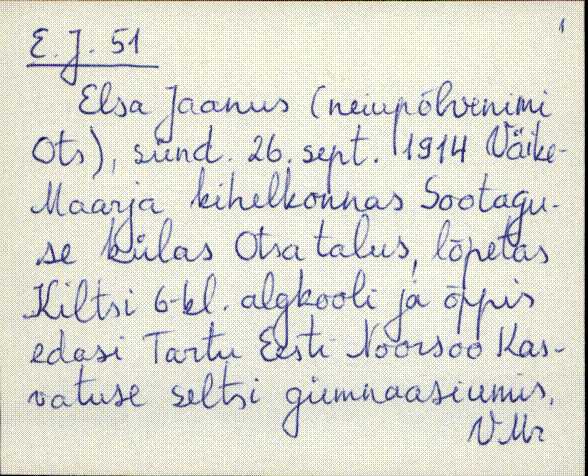 1
E. J. 51
Elsa Jaanus (neiupõlvenimi
Ots), sünd. 26. sept. 1914 Väike-
Maarja kihelkonnas Sootagu-
se külas Otsa talus, lõpetas
Kiltsi 6-kl. algkooli ja õppis
edasi Tartu Eesti Noorsoo Kas-
vatuse seltsi gümnaasiumis.
V Mr